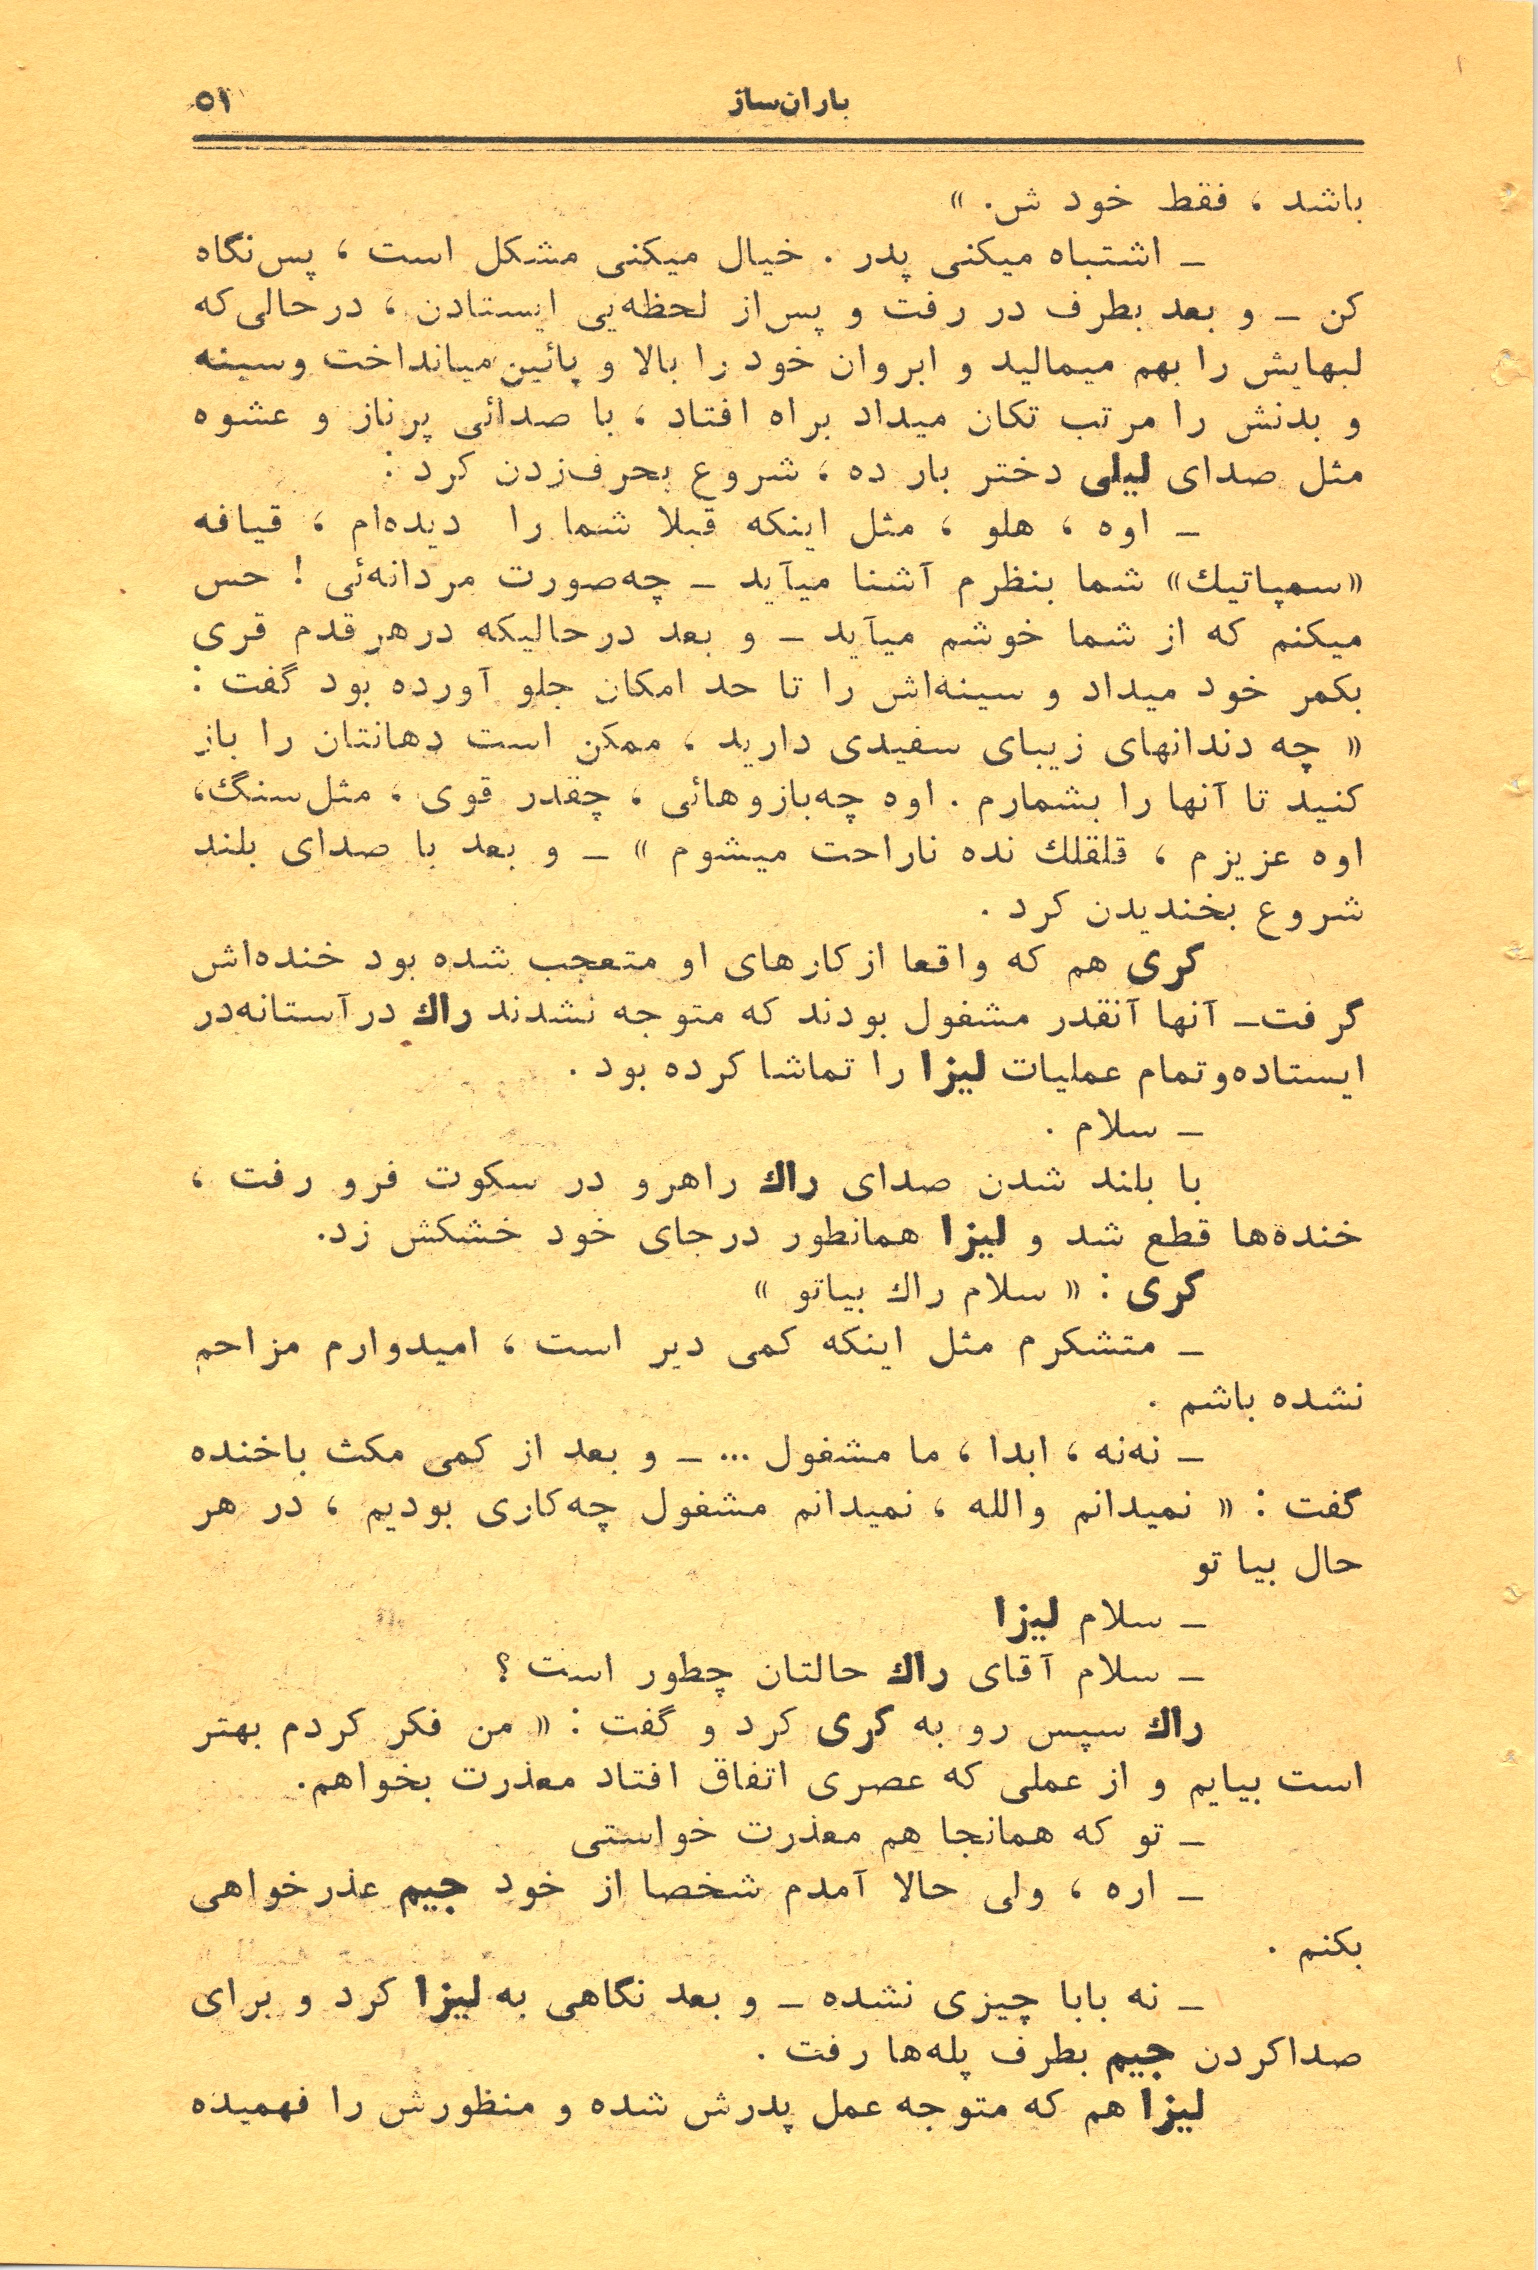 باران‌ساز ۵۱
باشد ، فقط خود ش. »
ـ اشتباه میکنی پدر . خیال میکنی مشکل است ، پس‌نگاه
کن ـ و بعد بطرف در رفت و پس‌از لحظه‌یی ایستادن ، درحالی‌که
لبهایش را بهم میمالید و ابروان خود را بالا و پائین میانداخت وسینه
و بدنش را مرتب تکان میداد براه افتاد ، با صدائی پرناز و عشوه
مثل صدای لیلی دختر بار ده ، شروع بحرف‌زدن کرد :
ـ اوه ، هلو ، مثل اینکه قبلا شما را دیده‌ام ، قیافه
«سمپاتیك» شما بنظرم آشنا میآید ـ چه‌صورت مردانه‌ئی ! حس
میکنم که از شما خوشم میآید ـ و بعد درحالیکه درهرقدم قری
بکمر خود میداد و سینه‌اش را تا حد امکان جلو آورده بود گفت :
« چه دندانهای زیبای سفیدی دارید ، ممکن است دهانتان را باز
کنید تا آنها را بشمارم . اوه چه‌بازوهائی ، چقدر قوی ، مثل‌سنگ،
اوه عزیزم ، قلقلك نده ناراحت میشوم » ـ و بعد با صدای بلند
شروع بخندیدن کرد .
کری هم که واقعا ازکارهای او متعجب شده بود خنده‌اش
گرفت ـ آنها آنقدر مشغول بودند که متوجه نشدند راك درآستانه‌در
ایستاده‌وتمام عملیات لیزا را تماشا کرده بود .
ـ سلام .
با بلند شدن صدای راك راهرو در سکوت فرو رفت ،
خنده‌ها قطع شد و لیزا همانطور درجای خود خشکش زد.
کری : « سلام راك بیاتو »
ـ متشکرم مثل اینکه کمی دیر است ، امیدوارم مزاحم
نشده باشم .
ـ نه‌نه ، ابدا ، ما مشغول ... ـ و بعد از کمی مکث باخنده
گفت : « نمیدانم والله ، نمیدانم مشغول چه‌کاری بودیم ، در هر
حال بیا تو
ـ سلام لیزا
ـ سلام آقای راك حالتان چطور است ؟
راك سپس رو به کری کرد و گفت : « من فکر کردم بهتر
است بیایم و از عملی که عصری اتفاق افتاد معذرت بخواهم.
ـ تو که همانجا هم معذرت خواستی
ـ اره ، ولی حالا آمدم شخصا از خود جیم عذرخواهی
بکنم .
ـ نه بابا چیزی نشده ـ و بعد نگاهی به لیزا کرد و برای
صداکردن جیم بطرف پله‌ها رفت .
لیزا هم که متوجه عمل پدرش شده و منظورش را فهمیده